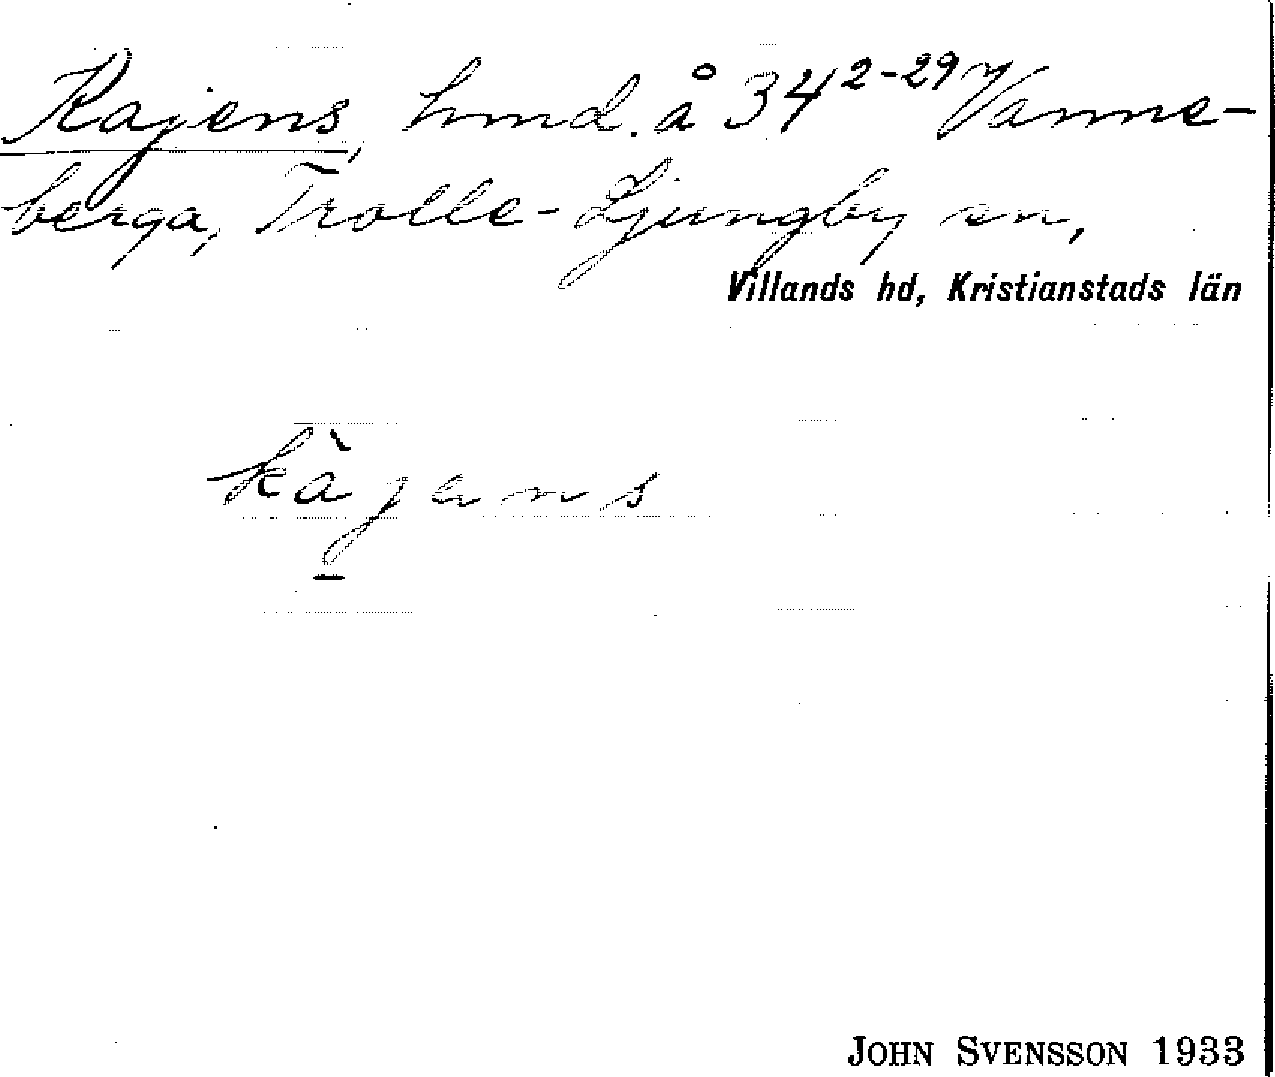 Kajens, hmd. å 34²⁻²⁹ Vanne-
berga, Trolle-Ljungby sn,
Villands hd, Kristianstads län
kàjens
JOHN SVENSSON 1933